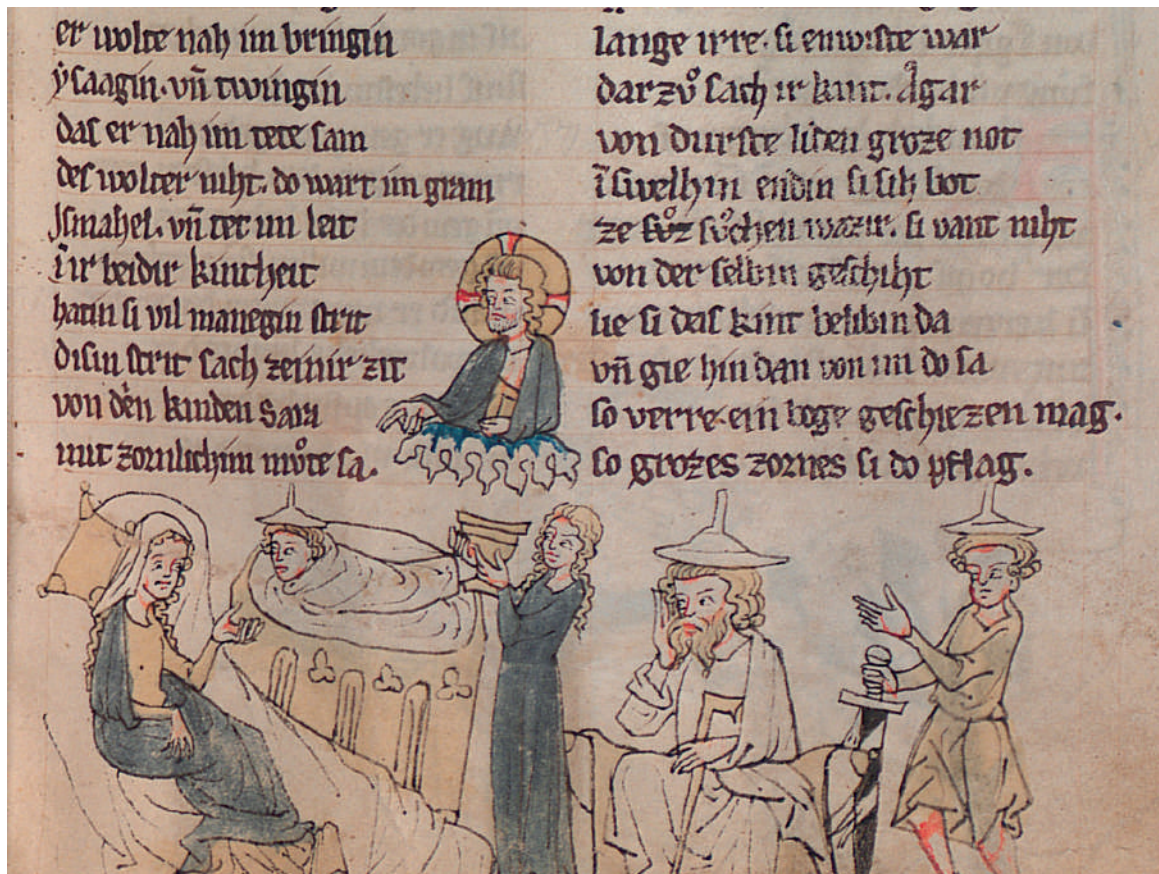 er wolte nah im bringin
ẏsaagin. vn̄ twingin
das er nah im tete sam
des wolter niht. do wart im gram
Jsmahel. vn̄ tet im leit
ī ir beidir kintheit
hatin si vil manegin strit
disin strit sach zeinir zit
von dēn kinden Sara
mit zornlichim mͦte sa.
lange irre. si enwiste war
dar zvͦ sach ir kint. Agar
von durste liden groze not
ī swelhin endin si sih bot
ze svͦchen wazir. si vant niht
von der selbin geschiht
lie si das kint belibin da
vn̄ gie hin dan von im do sa
so verre. ein boge geschiezen mag.
so grozes zornes si do pflag.